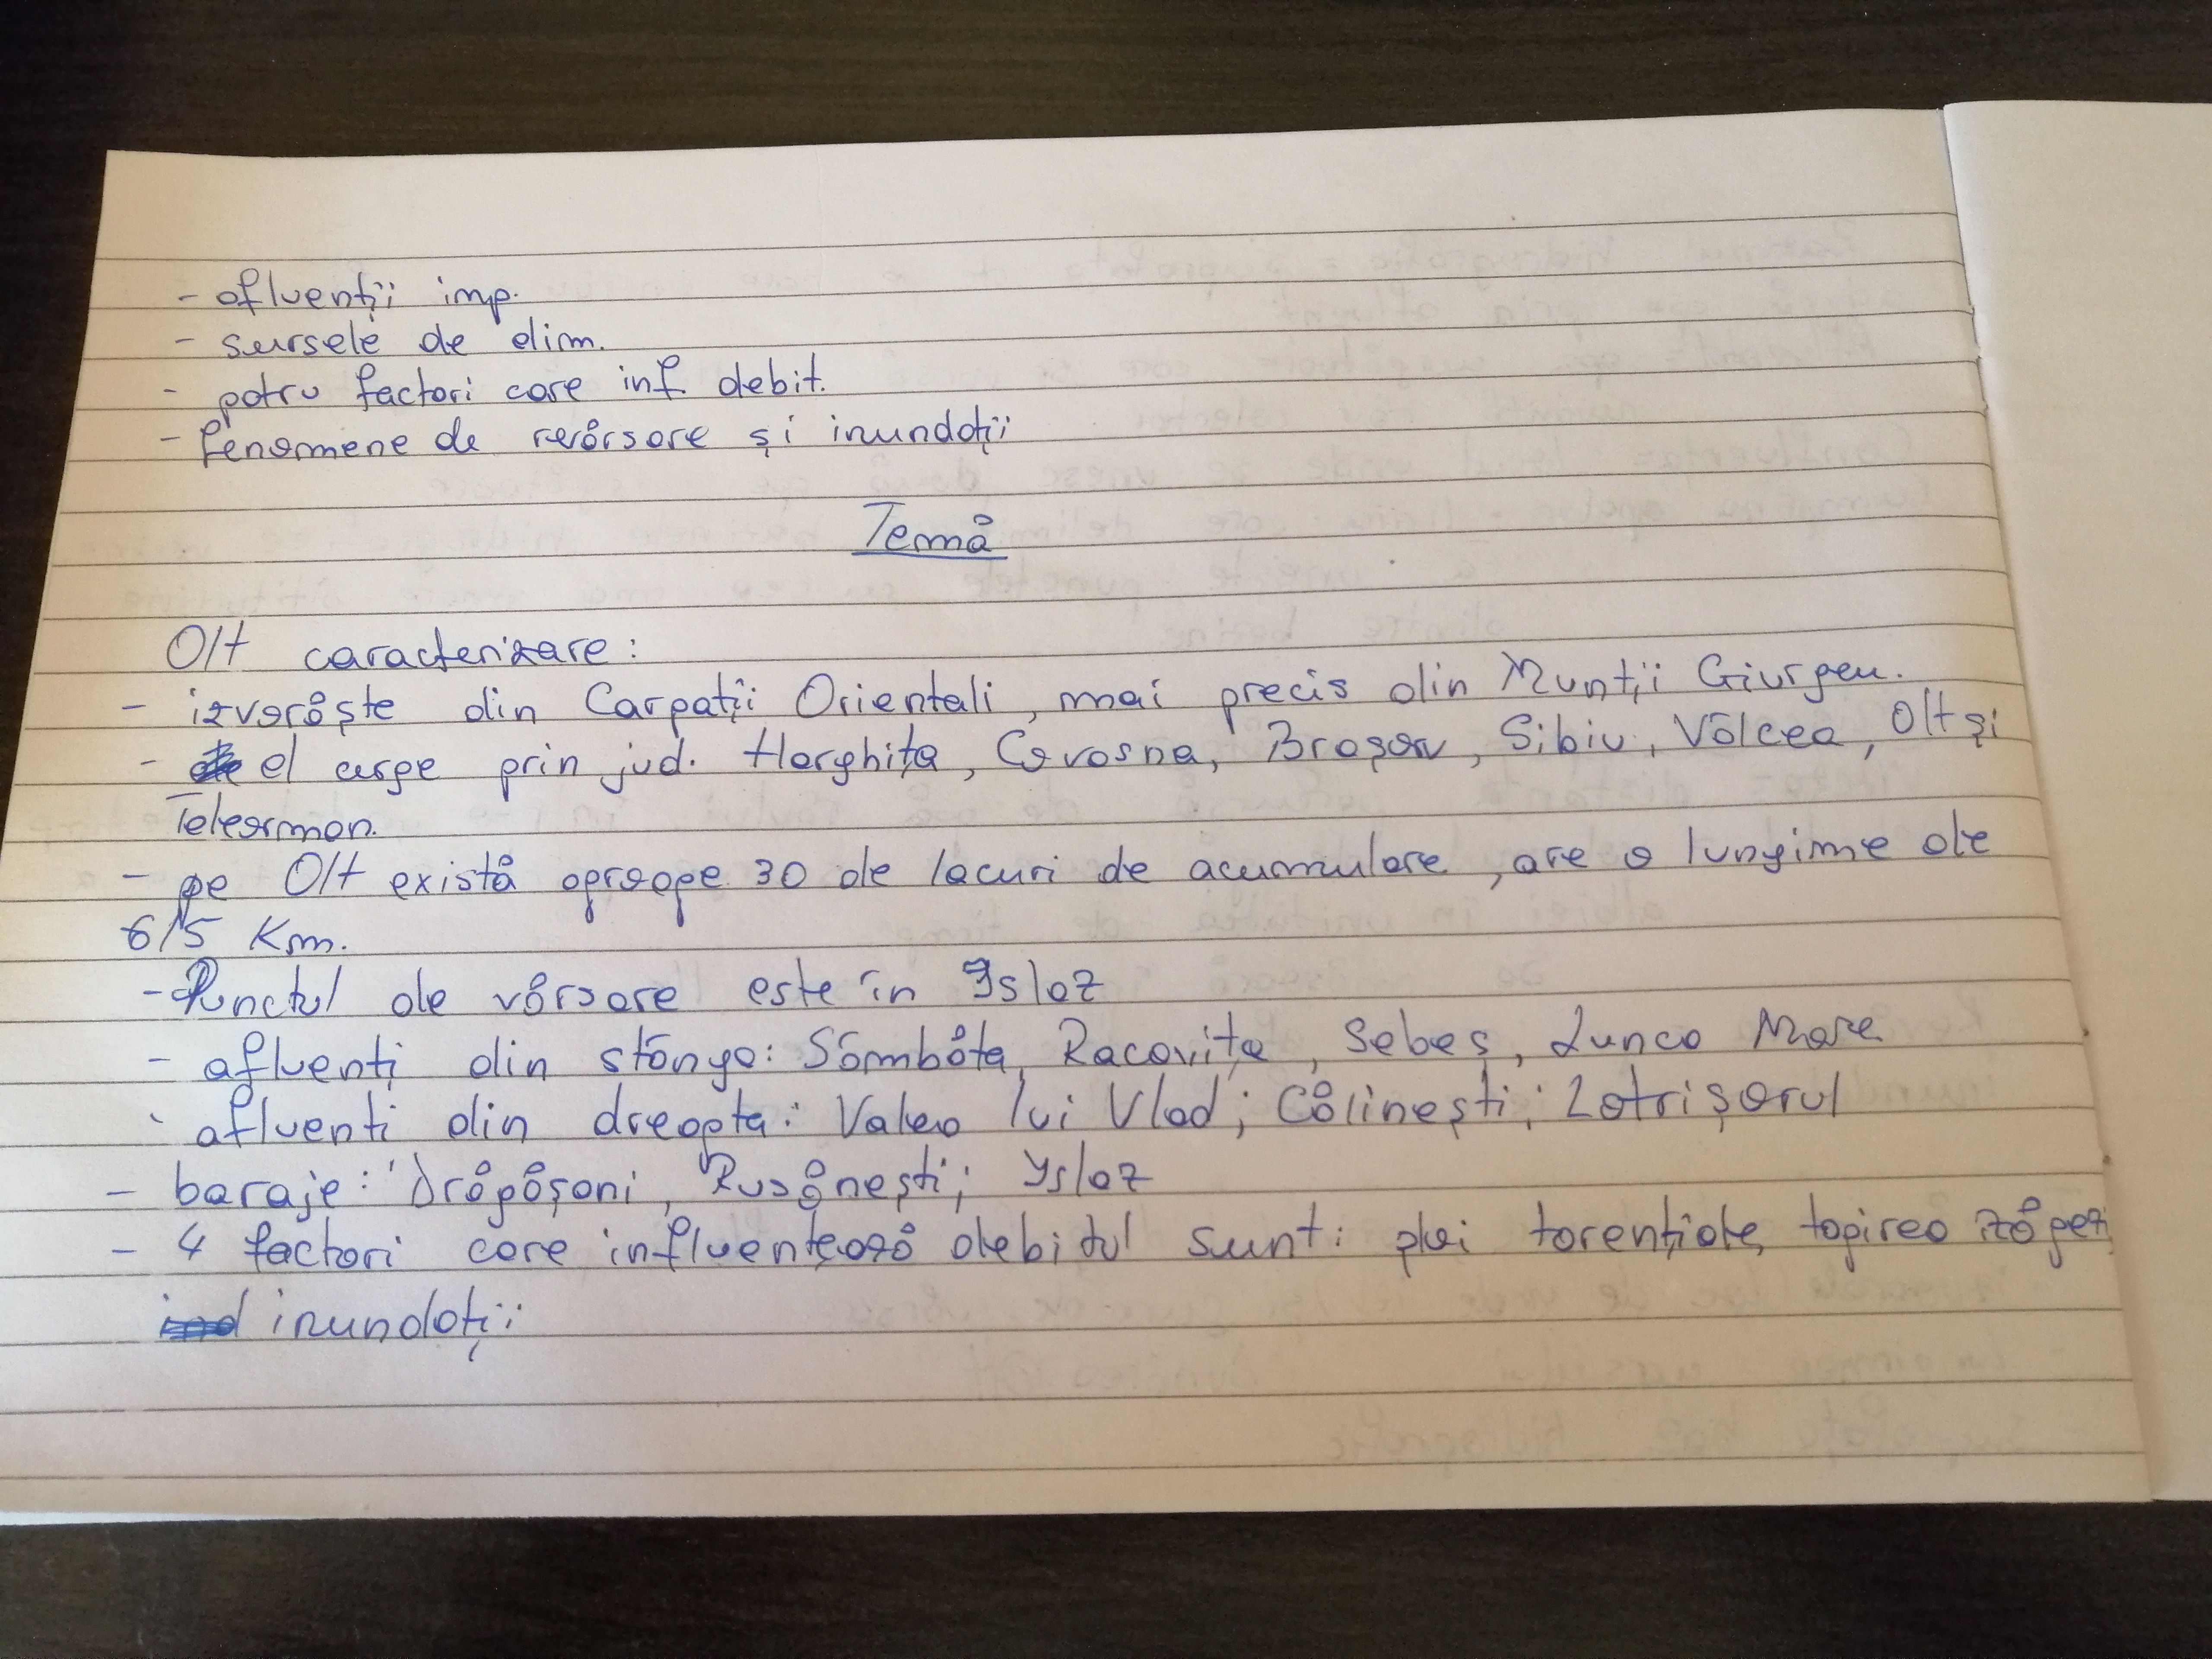 - afluenții imp.
- sursele de alim.
- patru factori care inf. debit.
- fenomene de revărsare și inundații
Temă
Olt caracterizare:
- izvorăște din Carpații Orientali, mai precis din Munții Giurgeu.
- el curge prin jud. Harghița, Covasna, Brașov, Sibiu, Vâlcea, Olt și
Teleorman.
- pe Olt există aproape 30 de lacuri de acumulare, are o lungime de
615 Km.
- Punctul de vărsare este în Islaz
- afluenți din stânga: Sâmbăta, Racovița, Sebeș, Lunca Mare
- afluenti din dreapta: Valea lui Vlad; Călinești; Lotrișorul
- baraje: Drăgășani, Rusănești; Islaz
- 4 factori care influențează debitul sunt: ploi torențiale, topirea zăpezi
inundații